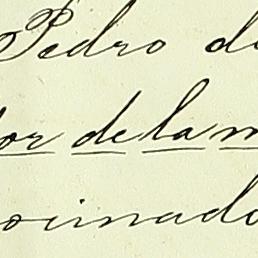 Pedro d
or de la m
cinado